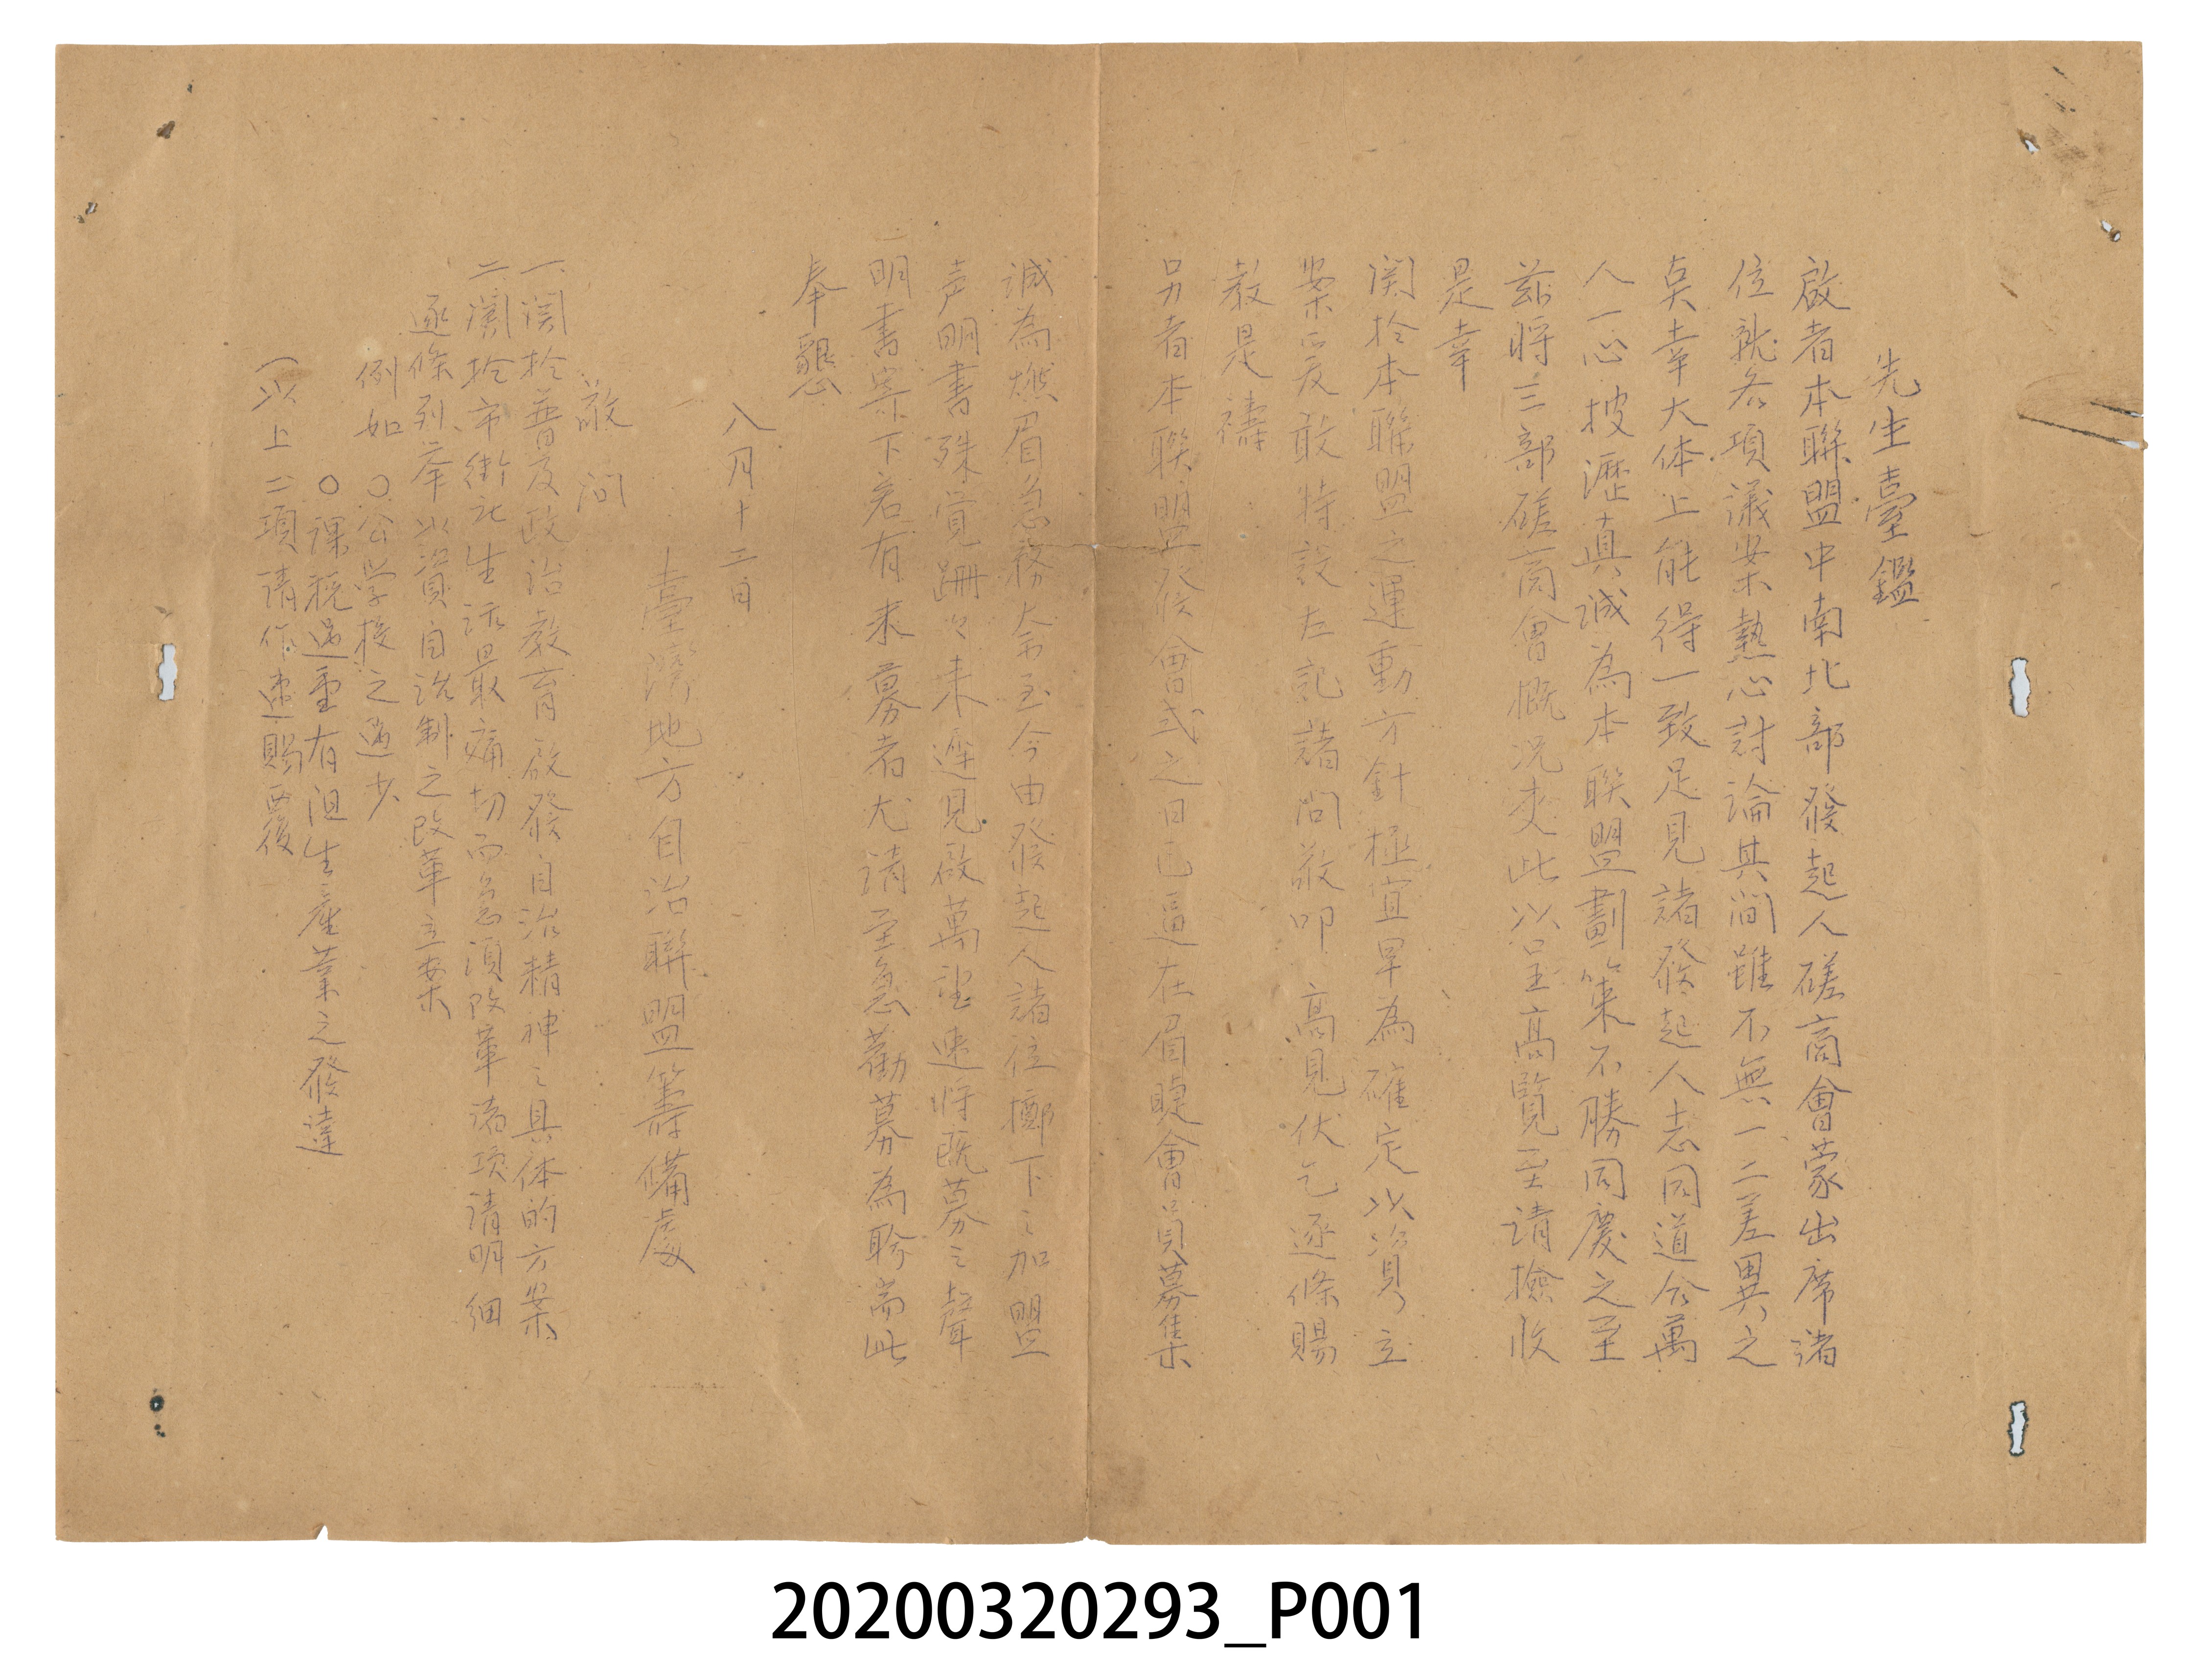 先生臺鑑
啟者本聯盟中南北部發起人磋商會蒙出席諸
位就各項議案熱心討論其间雖不無一二差異之
莫幸大体上能得一致足見諸發起人志同道合萬
人一心披瀝真誠為本聯盟劃策不勝同慶之至
茲將三部磋商會概況 此以呈高覧至请撿收
是幸
関於本聯盟之運動方針極宜早為確定以資立
案 爰敢特設左記諸问敬叩 高見伏乞逐條賜
教是禱
另者本聯盟發會式之日已逼在眉睫會員募集
诚為燃眉急務 至今由發起人諸位擲下之加盟
声明書殊覚跚々未達見啟萬望速將既募之聲
明書寄下若有未募者尤请至急勸募為盼耑此
奉懇
八月十二日
臺灣地方自治聯盟籌備處
敬问
一、関於普及政治教育啟發自治精神之具体的方案
二、関於市街庄生活最痛切而急須改革諸項请明细
逐條列举以資自治制之改革立案
例如 ○公学校之過少
○課税過重有阻生産業之發達
(以上二項请作速賜覆
20200320293_P001